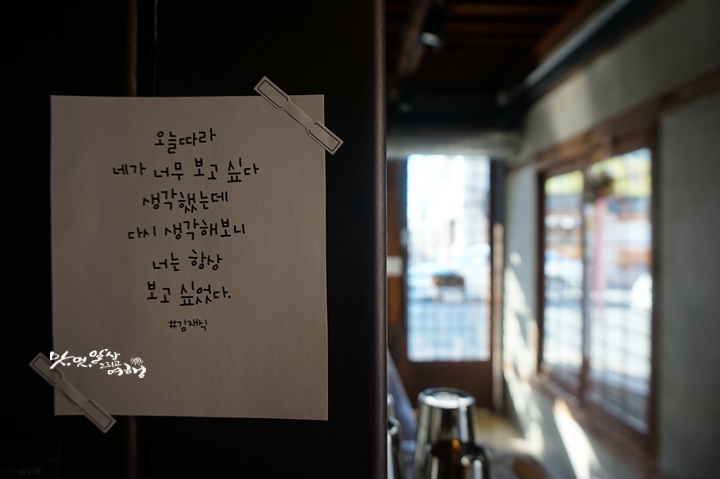 오늘따라
네가 너무 보고 싶다
생각했는데
다시 생각해보니
너는 항상
보고 싶었다.
#김재식
맛, 멋, 일상 그리고 여행